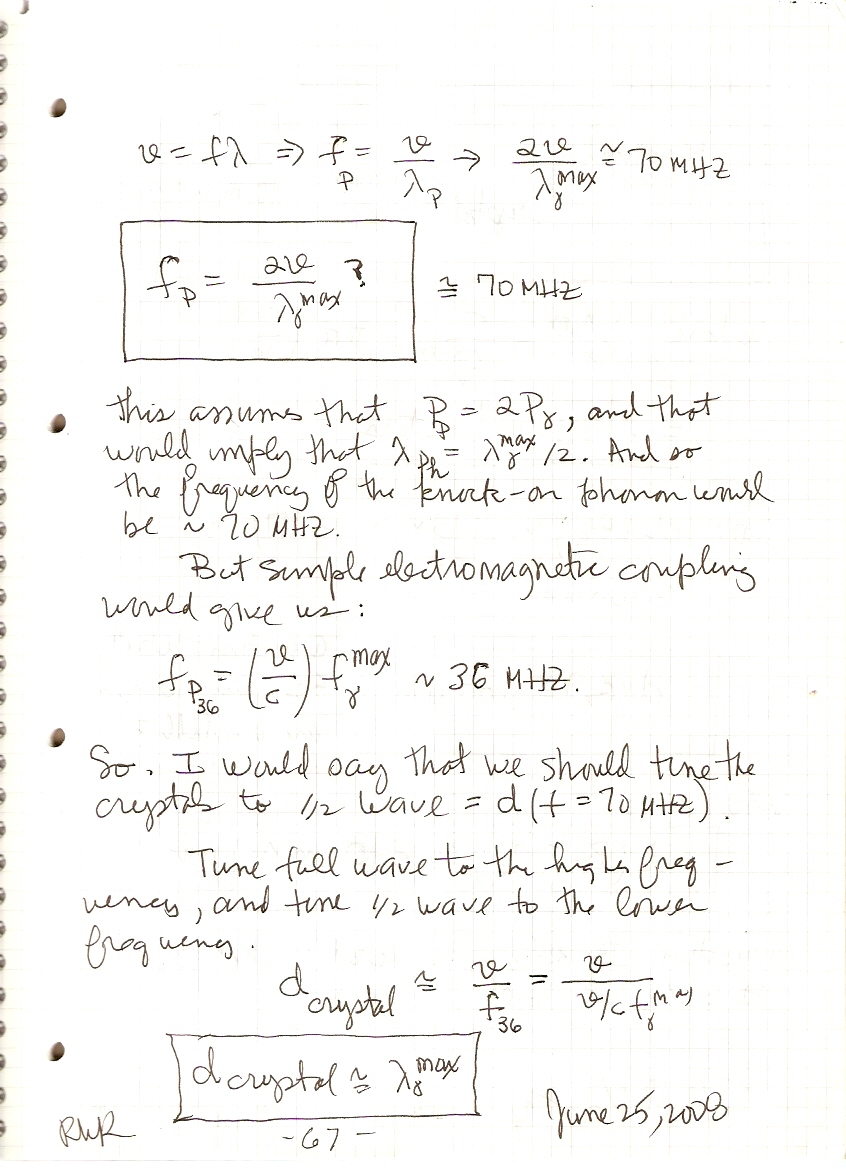 v = fλ ⇒ f_p = v/λ_p → 2v/λ_γ^max ≅ 70 MHZ
f_p = 2v/λ_γ^max ? ≅ 70 MHZ
this assumes that P_p = 2P_γ, and that
would imply that λ_ph = λ_γ^max /2. And so
the frequency of the knock-on phonon would
be ~ 70 MHZ.
But simple electromagnetic coupling
would give us:
f_P36 = (v/c) f_γ^max ~ 36 MHZ.
So. I would say that we should tune the
crystals to 1/2 wave = d(f = 70 MHZ).
Tune full wave to the higher freq-
uency, and tune 1/2 wave to the lower
frequency.
d_crystal ≅ v/f_36 = v/(v/c f_γ^max)
d_crystal ≅ λ_γ^max
RWR -67- June 25, 2008